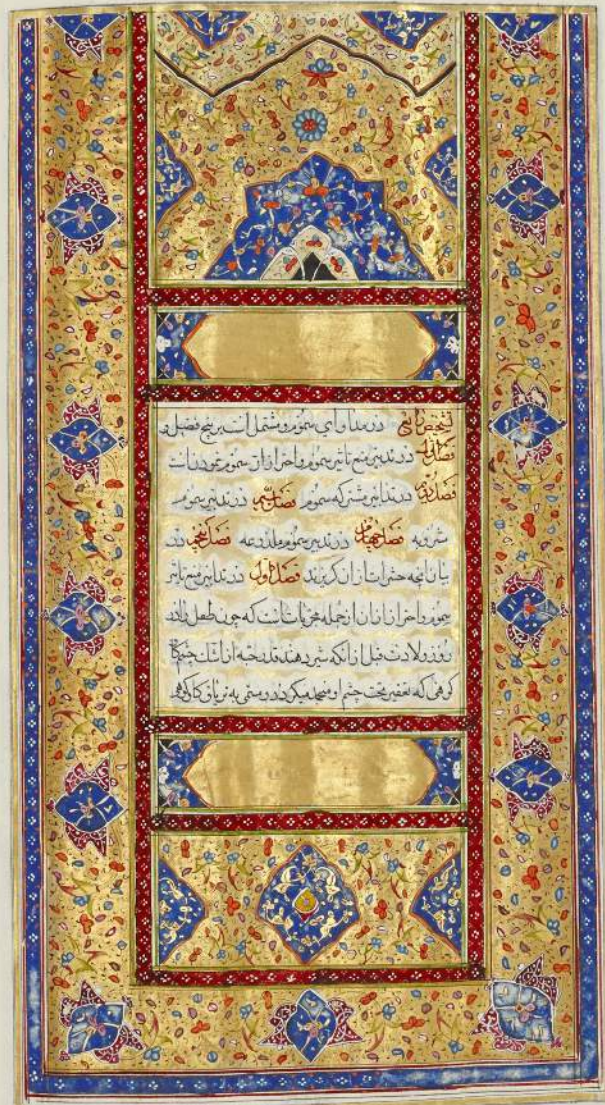 تشخیص رابع در مداوای سموم و مشتمل است بر پنج فصل و
فصل اول در تدابیر منع تاثیر سموم و احتراز از سموم نمودنست
فصل دویم در تدابیر مشترکه سموم فصل سیم در تدابیر سموم
مشروبه فصل چهارم در تدبیر سموم ملذوعه فصل پنجم در
بیان آنچه حشرات از آن گریزند فصل اول در تدابیر منع تاثیر
سموم و احتراز از آن از جمله مجربات آنست که چون طفل را در
روز ولادت قبل از آنکه شیر دهند قدر حبه از اشک چشم گاو
کوهی که تحت چشم او منجمد میگردد و مسمی به تریاق گاو کوهی